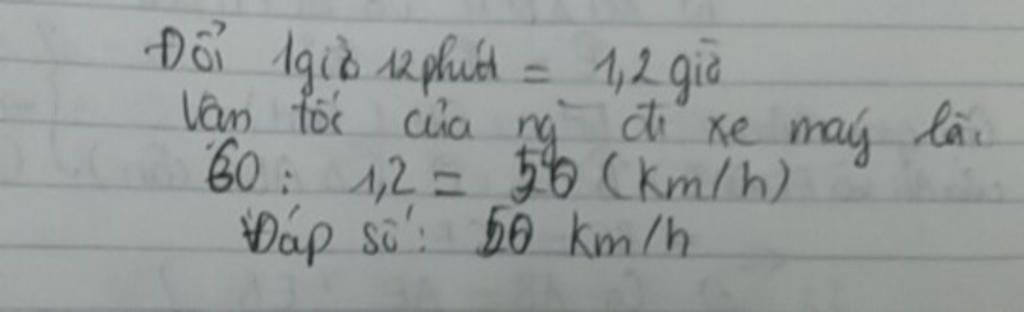 Đổi 1giờ 12phút = 1,2giờ
Vận tốc của ng đi xe máy là:
60 : 1,2 = 50 (km/h)
Đáp số: 50 km/h